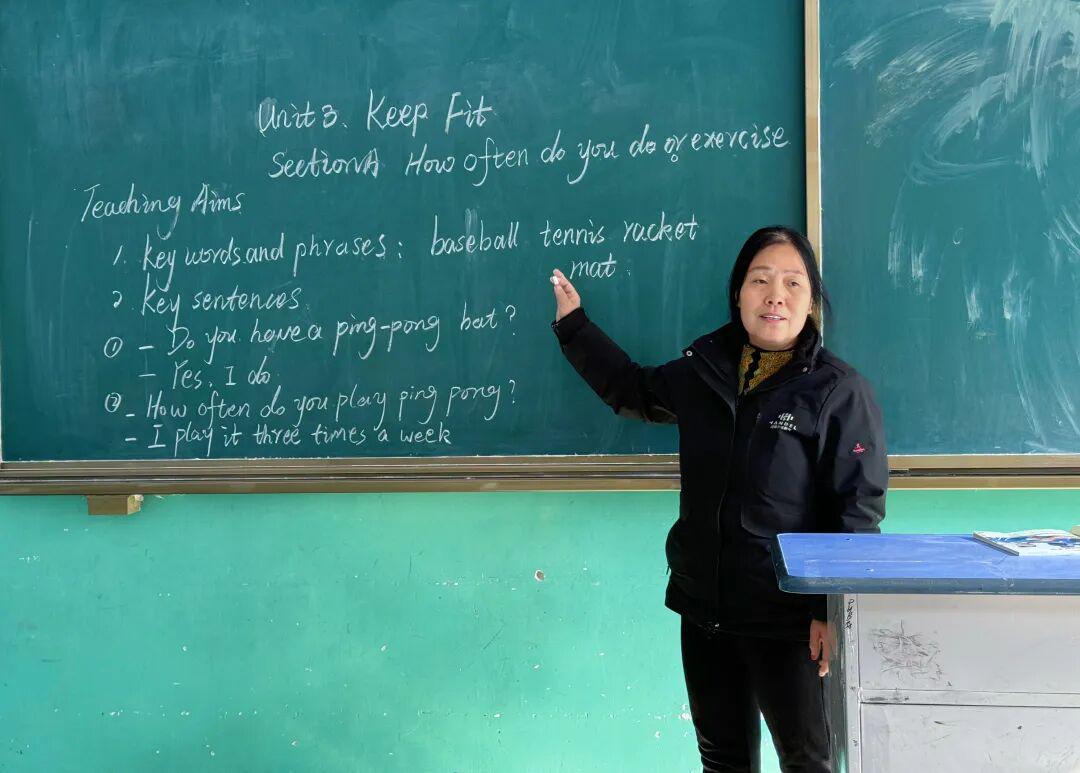 Unit 3. Keep Fit
Section A How often do you do or exercise
Teaching Aims
1. Key words and phrases: baseball tennis racket
mat.
2 Key sentences
① - Do you have a ping-pong bat?
- Yes, I do
② - How often do you play ping pong?
- I play it three times a week